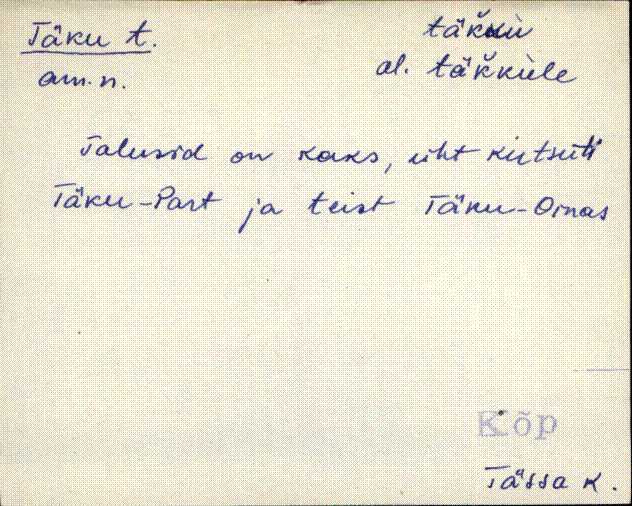 Täku t.
täk̆kù
am. n.
al. täk̆kùle
Talusid on kaks, üht kutsuti
Täku-Part ja teist Täku-Oinas
Kõp
Tässa k.